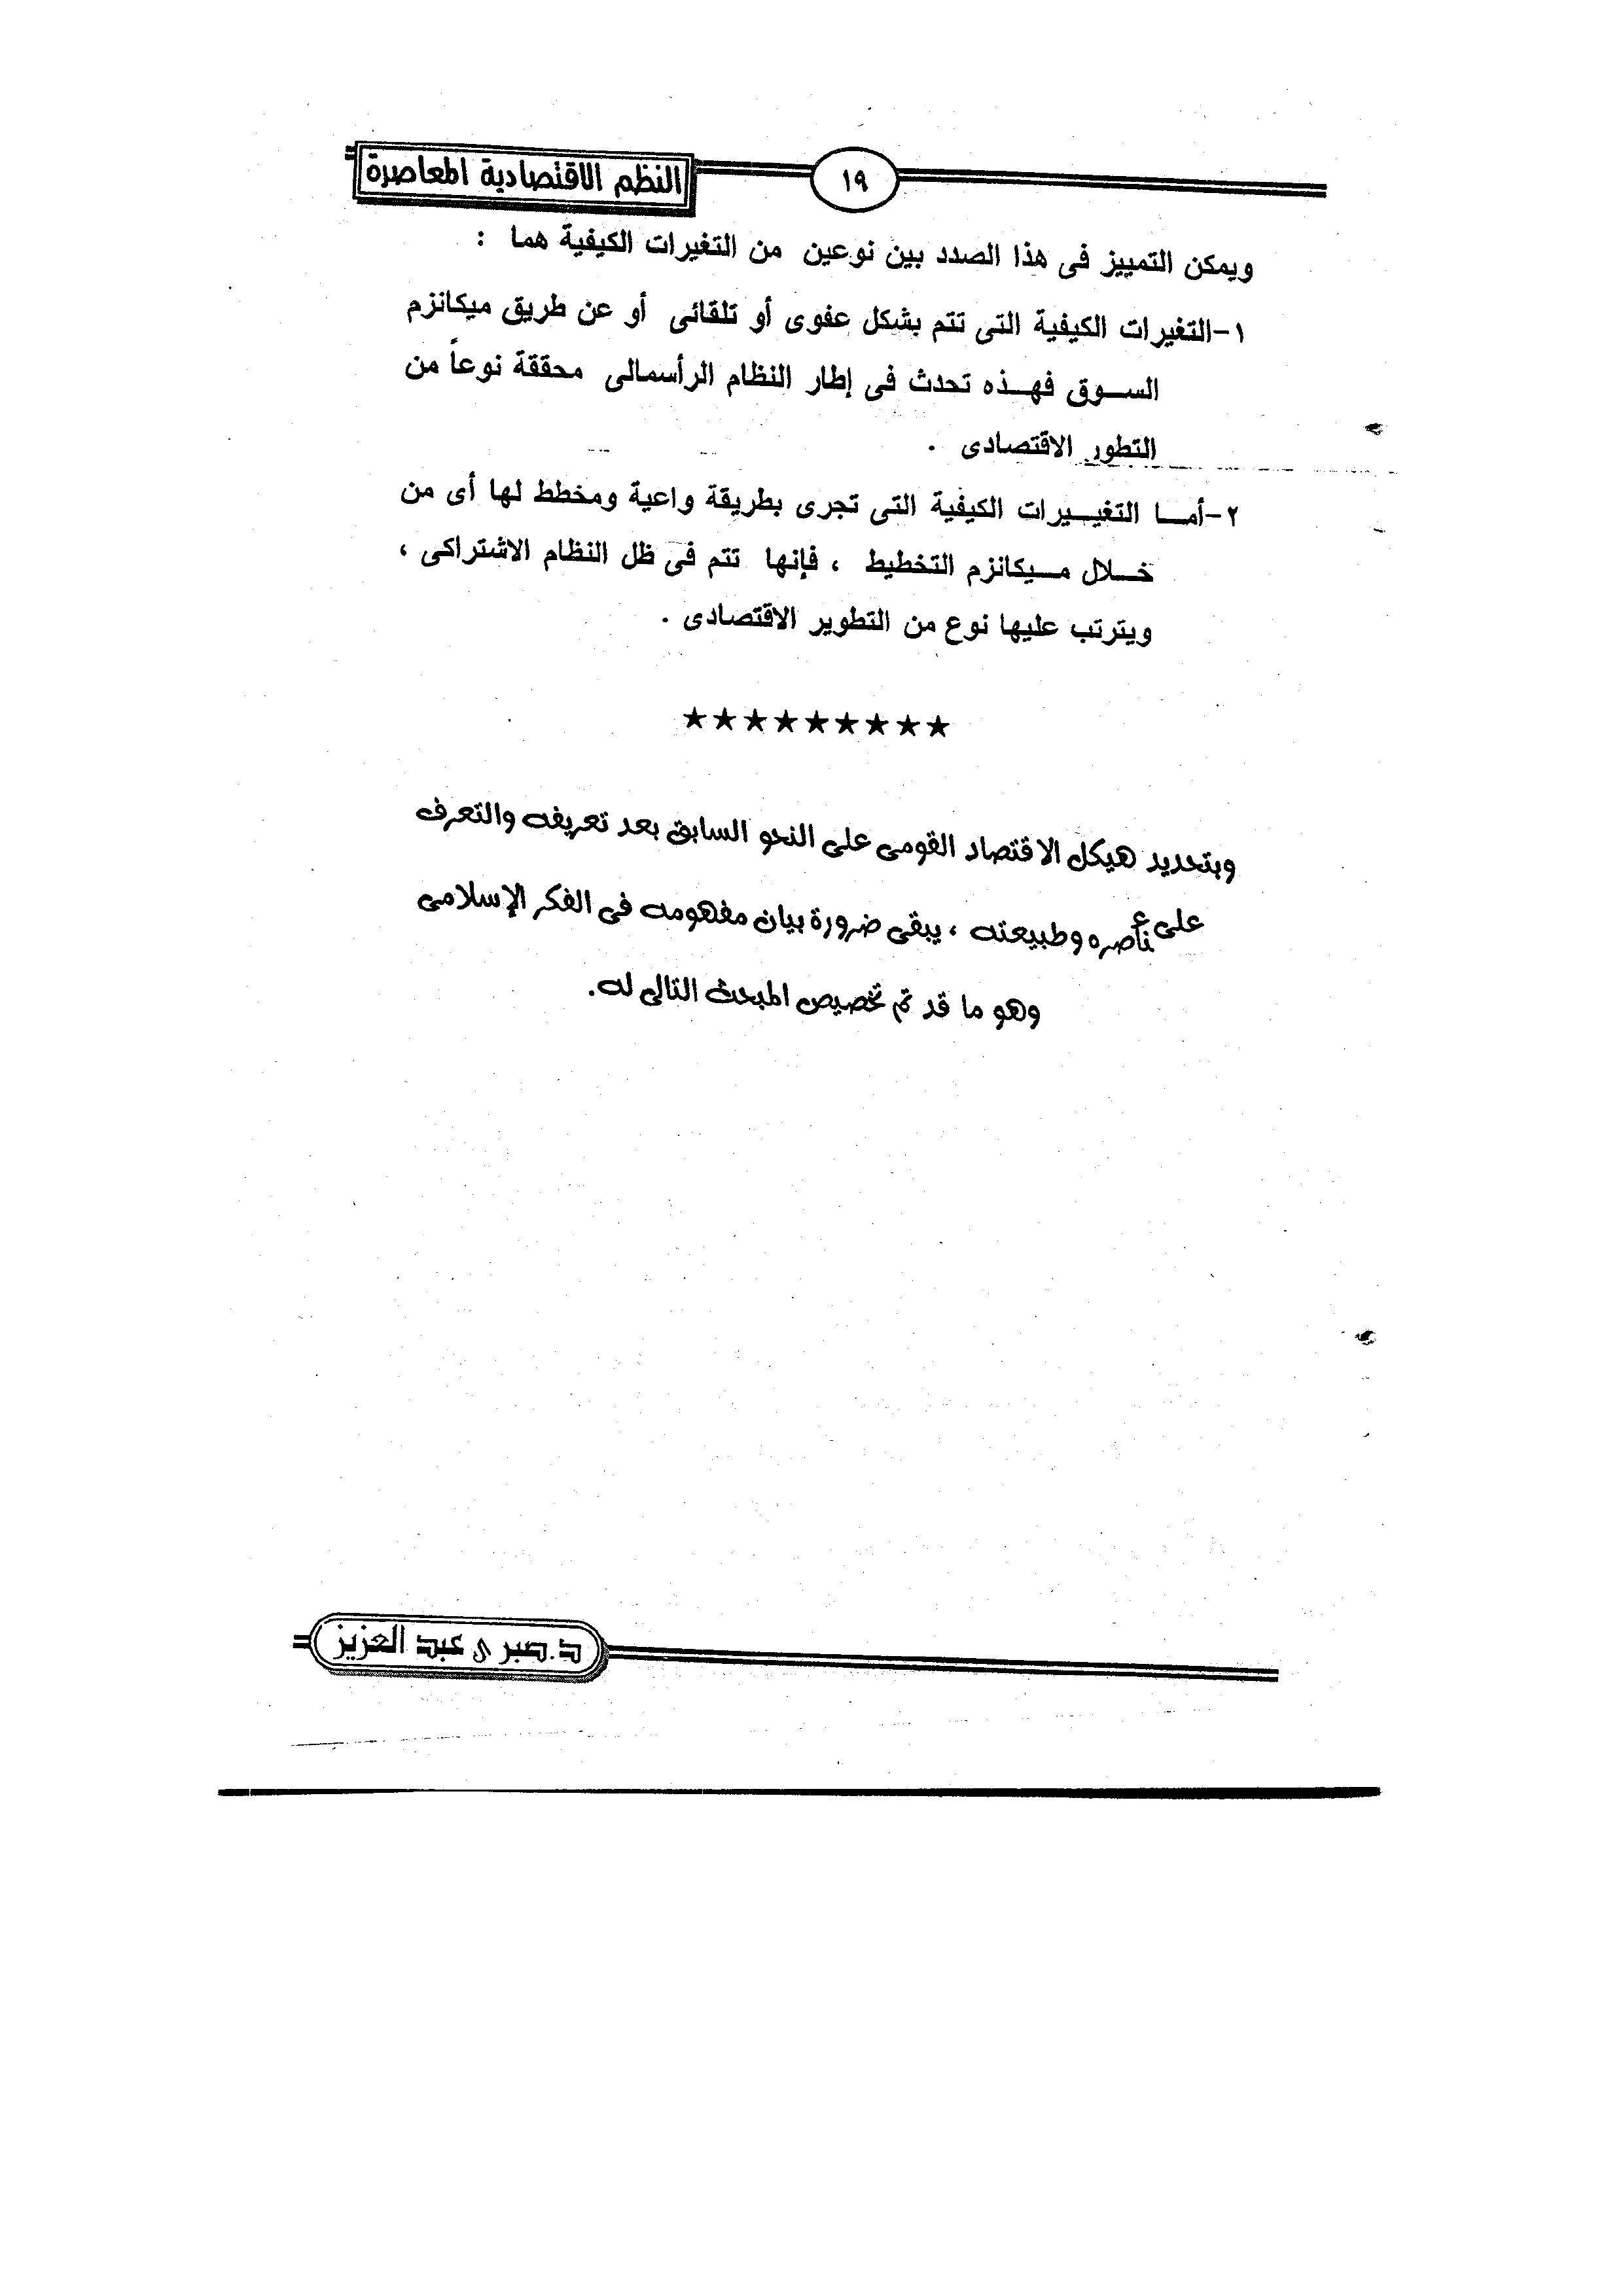 النظم الاقتصادية المعاصرة
١٩
ويمكن التمييز فى هذا الصدد بين نوعين من التغيرات الكيفية هما :
١-التغيرات الكيفية التى تتم بشكل عفوى أو تلقائى أو عن طريق ميكانزم
الســوق فهــذه تحدث فى إطار النظام الرأسمالى محققة نوعاً من
التطور الاقتصادى .
٢-أمــا التغيــيرات الكيفية التى تجرى بطريقة واعية ومخطط لها أى من
خــلال مــيكانزم التخطيط ، فإنها تتم فى ظل النظام الاشتراكى ،
ويترتب عليها نوع من التطوير الاقتصادى .
★★★★★★★★★
وبتحديد هيكل الاقتصاد القومى على النحو السابق بعد تعريفه والتعرف
على عناصره وطبيعته ، يبقى ضرورة بيان مفهومه فى الفكر الإسلامى
وهو ما قد تم تخصيص المبحث التالى له.
د.صبرى عبد العزيز